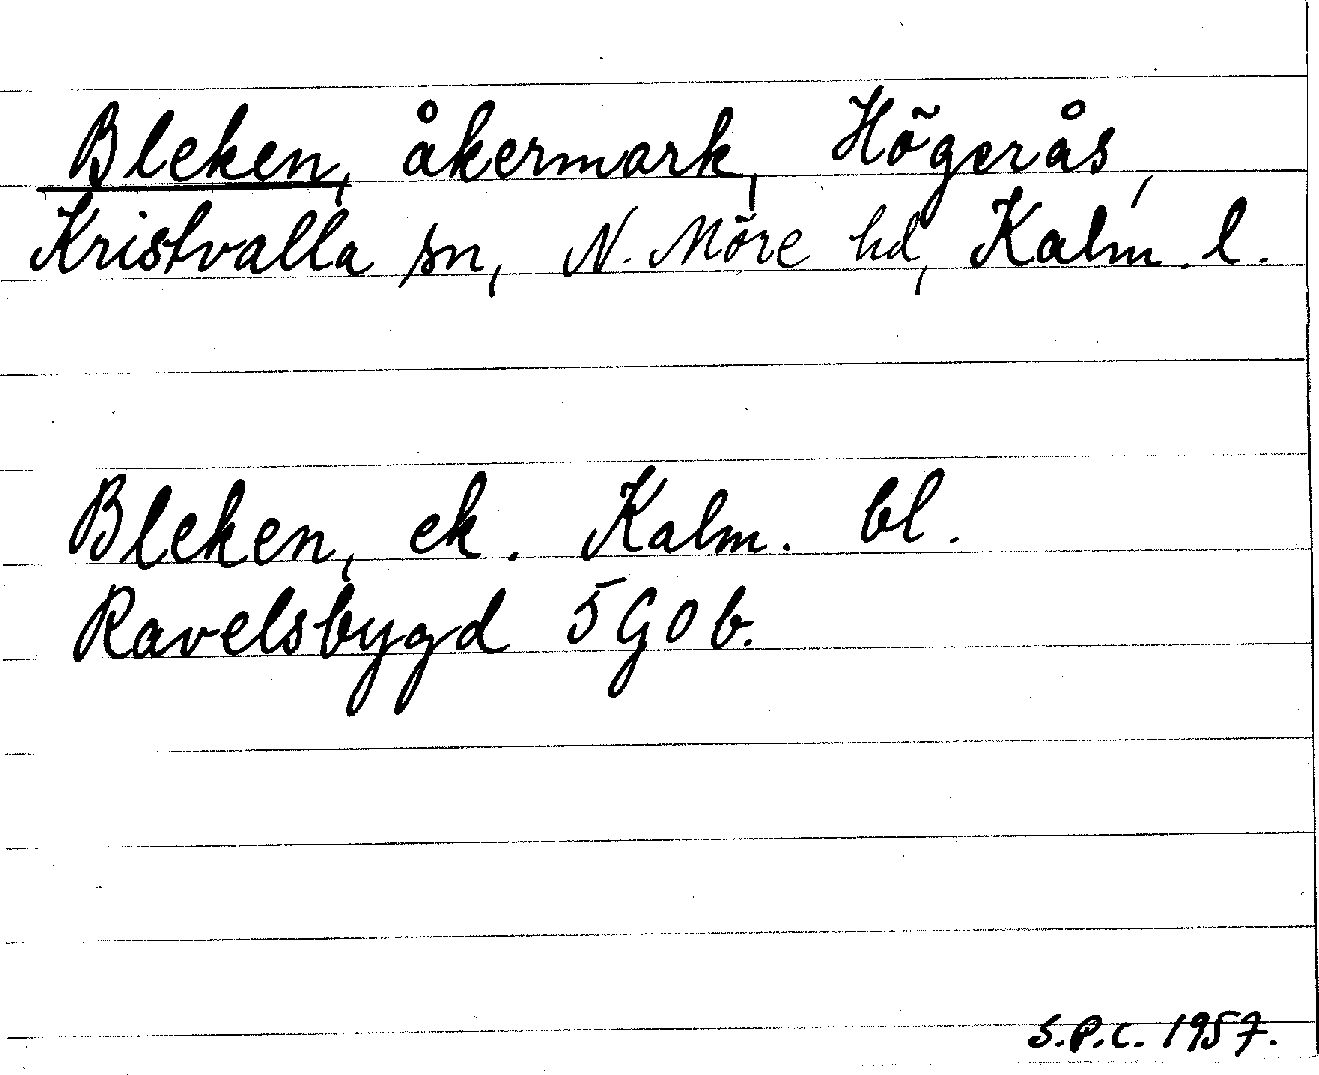 Bleken, åkermark, Högerås,
Kristvalla sn, N. Möre hd, Kalm. l.
Bleken, ek. Kalm. bl.
Ravelsbygd 5G0b.
S.P.C. 1957.